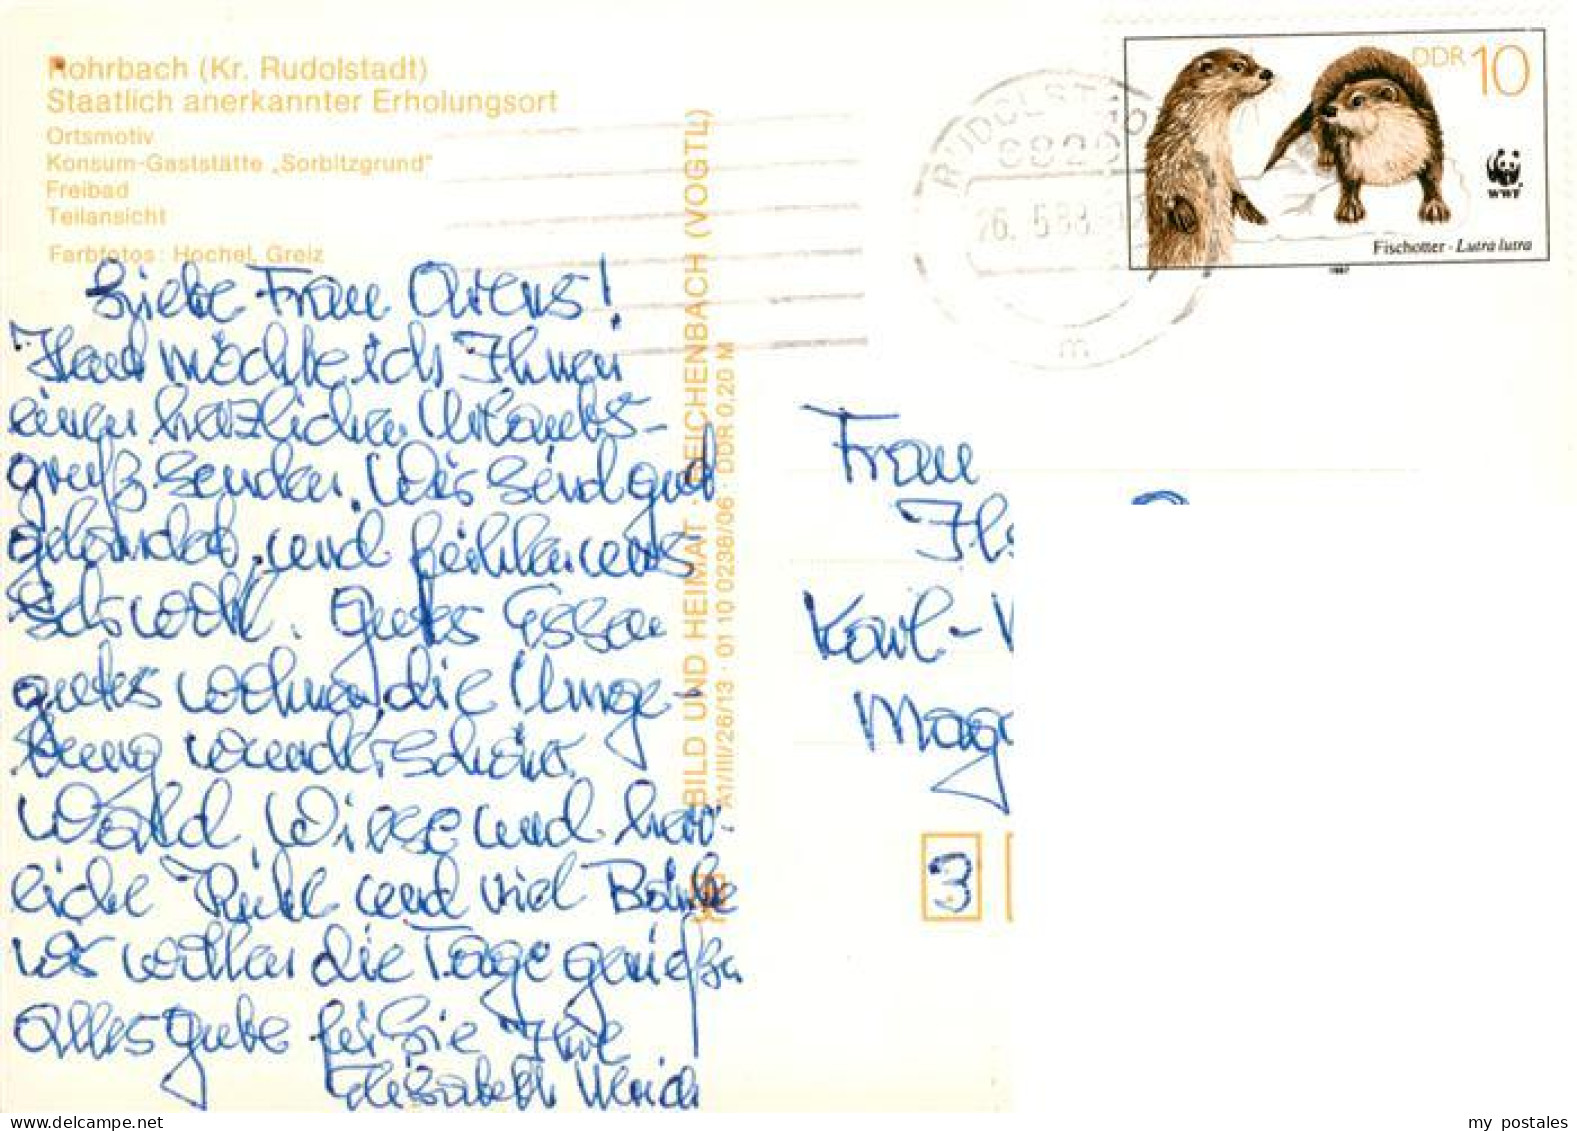 Rohrbach (Kr. Rudolstadt)
Staatlich anerkannter Erholungsort
Ortsmotiv
Konsum-Gaststätte „Sorbitzgrund"
Freibad
Teilansicht
Farbfotos: Hochel, Greiz
Liebe Frau Arens!
Heut möchte ich Ihnen
einen herzlichen Urlaubs-
gruß senden. Wir sind gut
gelandet und fühlen uns
sehr wohl. Gutes Essen
gutes wohnen, die Umge-
bung wunderschön.
Wald, Wiese und herr-
liche Ruhe und viel
wir wollen die Tage genießen
Alles gute für Sie Ihre
Elisabeth Ulrich
BILD UND HEIMAT · REICHENBACH (VOGTL)
A1/III/26/13 · 01 10 0238/06 · DDR 0,20 M
RUDOLSTADT
26. 5.88
m
DDR 10
WWF
Fischotter - Lutra lutra
1987
Frau
Karl-
Mag
3
my postales